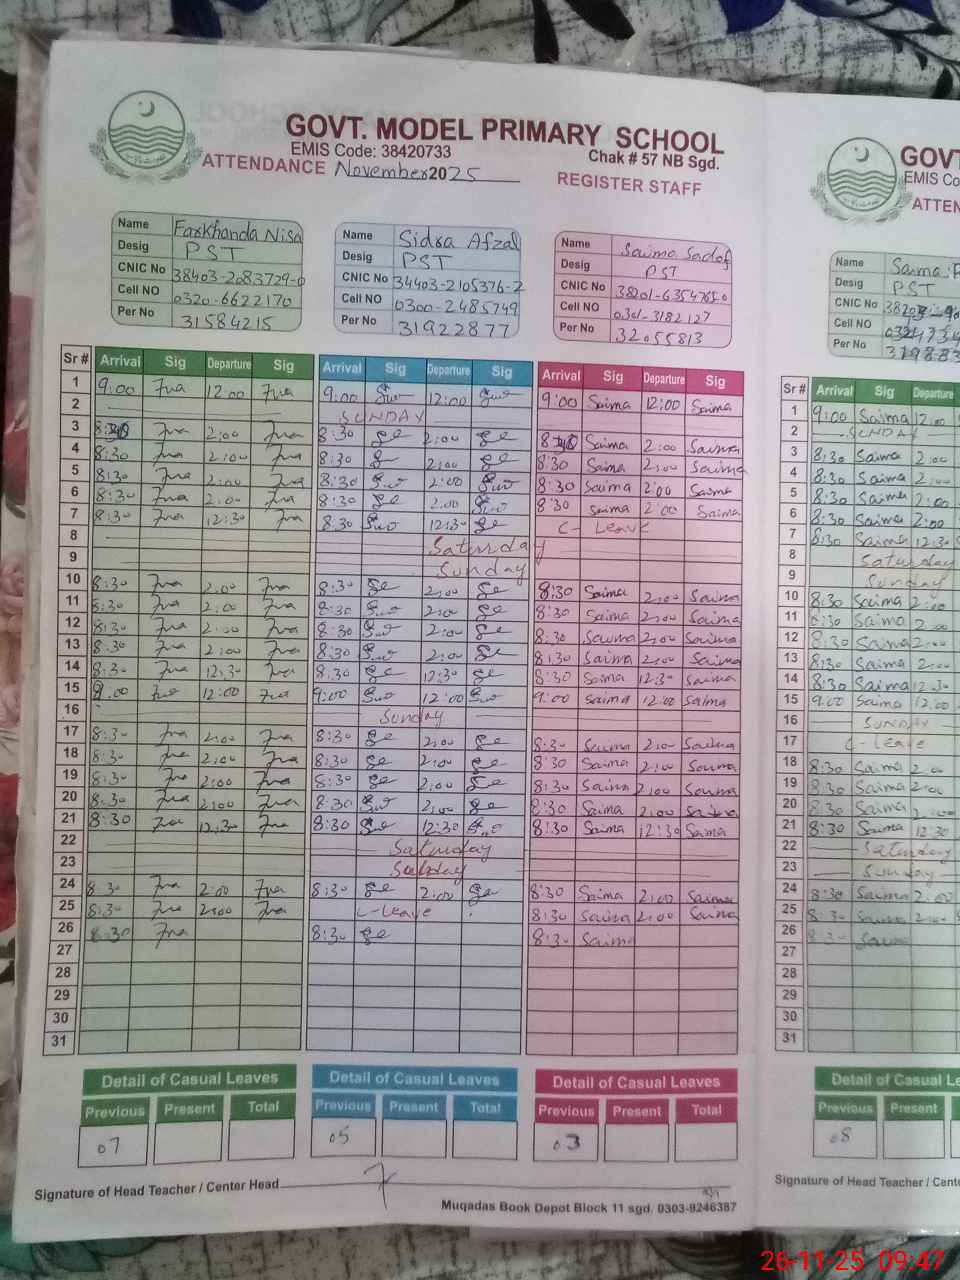 GOVT. MODEL PRIMARY SCHOOL
EMIS Code: 38420733
Chak # 57 NB Sgd.
ATTENDANCE November 2025 REGISTER STAFF
Name Farkhanda Nisa
Desig PST
CNIC No 38403-2083729-0
Cell NO 0320-6622170
Per No 31584215
Name Sidra Afzal
Desig PST
CNIC No 34403-2105376-2
Cell NO 0300-2485749
Per No 31922877
Name Saima Sadaf
Desig PST
CNIC No
Cell NO 0301-3182127
Per No 32055813
Sr # Arrival Sig Departure Sig Arrival Sig Departure Sig Arrival Sig Departure Sig
1 9:00 12:00 9:00 12:00 9:00 Saima 12:00 Saima
2 SUNDAY
3 2:00 8:30 2:00 Saima 2:00 Saima
4 8:30 2:00 8:30 2:00 8:30 Saima 2:00 Saima
5 8:30 2:00 8:30 2:00 8:30 Saima 2:00 Saima
6 8:30 2:00 8:30 2:00 8:30 Saima 2:00 Saima
7 8:30 12:30 8:30 12:30 C-Leave
8 Saturday
9 Sunday
10 8:30 2:00 8:30 2:00 8:30 Saima 2:00 Saima
11 8:30 2:00 8:30 2:00 8:30 Saima 2:00 Saima
12 8:30 2:00 8:30 2:00 8:30 Saima 2:00 Saima
13 8:30 2:00 8:30 2:00 8:30 Saima 2:00 Saima
14 8:30 12:30 8:30 12:30 8:30 Saima 12:30 Saima
15 9:00 12:00 9:00 12:00 9:00 Saima 12:00 Saima
16 Sunday
17 8:30 2:00 8:30 2:00 8:30 Saima 2:00 Saima
18 8:30 2:00 8:30 2:00 8:30 Saima 2:00 Saima
19 8:30 2:00 8:30 2:00 8:30 Saima 2:00 Saima
20 8:30 2:00 8:30 2:00 8:30 Saima 2:00 Saima
21 8:30 12:30 8:30 12:30 8:30 Saima 12:30 Saima
22 Saturday
23 Sunday
24 8:30 2:00 8:30 2:00 8:30 Saima 2:00 Saima
25 8:30 2:00 C-Leave 8:30 Saima 2:00 Saima
26 8:30 8:30 8:30 Saima
27
28
29
30
31
Detail of Casual Leaves Detail of Casual Leaves Detail of Casual Leaves
Previous Present Total Previous Present Total Previous Present Total
07 05 03
Signature of Head Teacher / Center Head
Muqadas Book Depot Block 11 sgd. 0303-9246387
GOVT
EMIS Co
ATTEN
Name Saima
Desig PST
CNIC No
Cell NO
Per No
Sr # Arrival Sig Departure
1 9:00 Saima 12:00
2 SUNDAY
3 8:30 Saima 2:00
4 8:30 Saima 2:00
5 8:30 Saima 2:00
6 8:30 Saima 2:00
7 8:30 Saima 12:30
8 Saturday
9 Sunday
10 8:30 Saima 2:00
11 8:30 Saima 2:00
12 8:30 Saima 2:00
13 8:30 Saima 2:00
14 8:30 Saima 12:30
15 9:00 Saima 12:00
16 SUNDAY
17 C-leave
18 8:30 Saima 2:00
19 8:30 Saima 2:00
20 8:30 Saima 2:00
21 8:30 Saima 12:30
22 Saturday
23 Sunday
24 8:30 Saima 2:00
25 8:30 Saima 2:00
26 8:30 Saima
27
28
29
30
31
Detail of Casual Le
Previous Present
08
Signature of Head Teacher / Cente
26-11-25 09:47